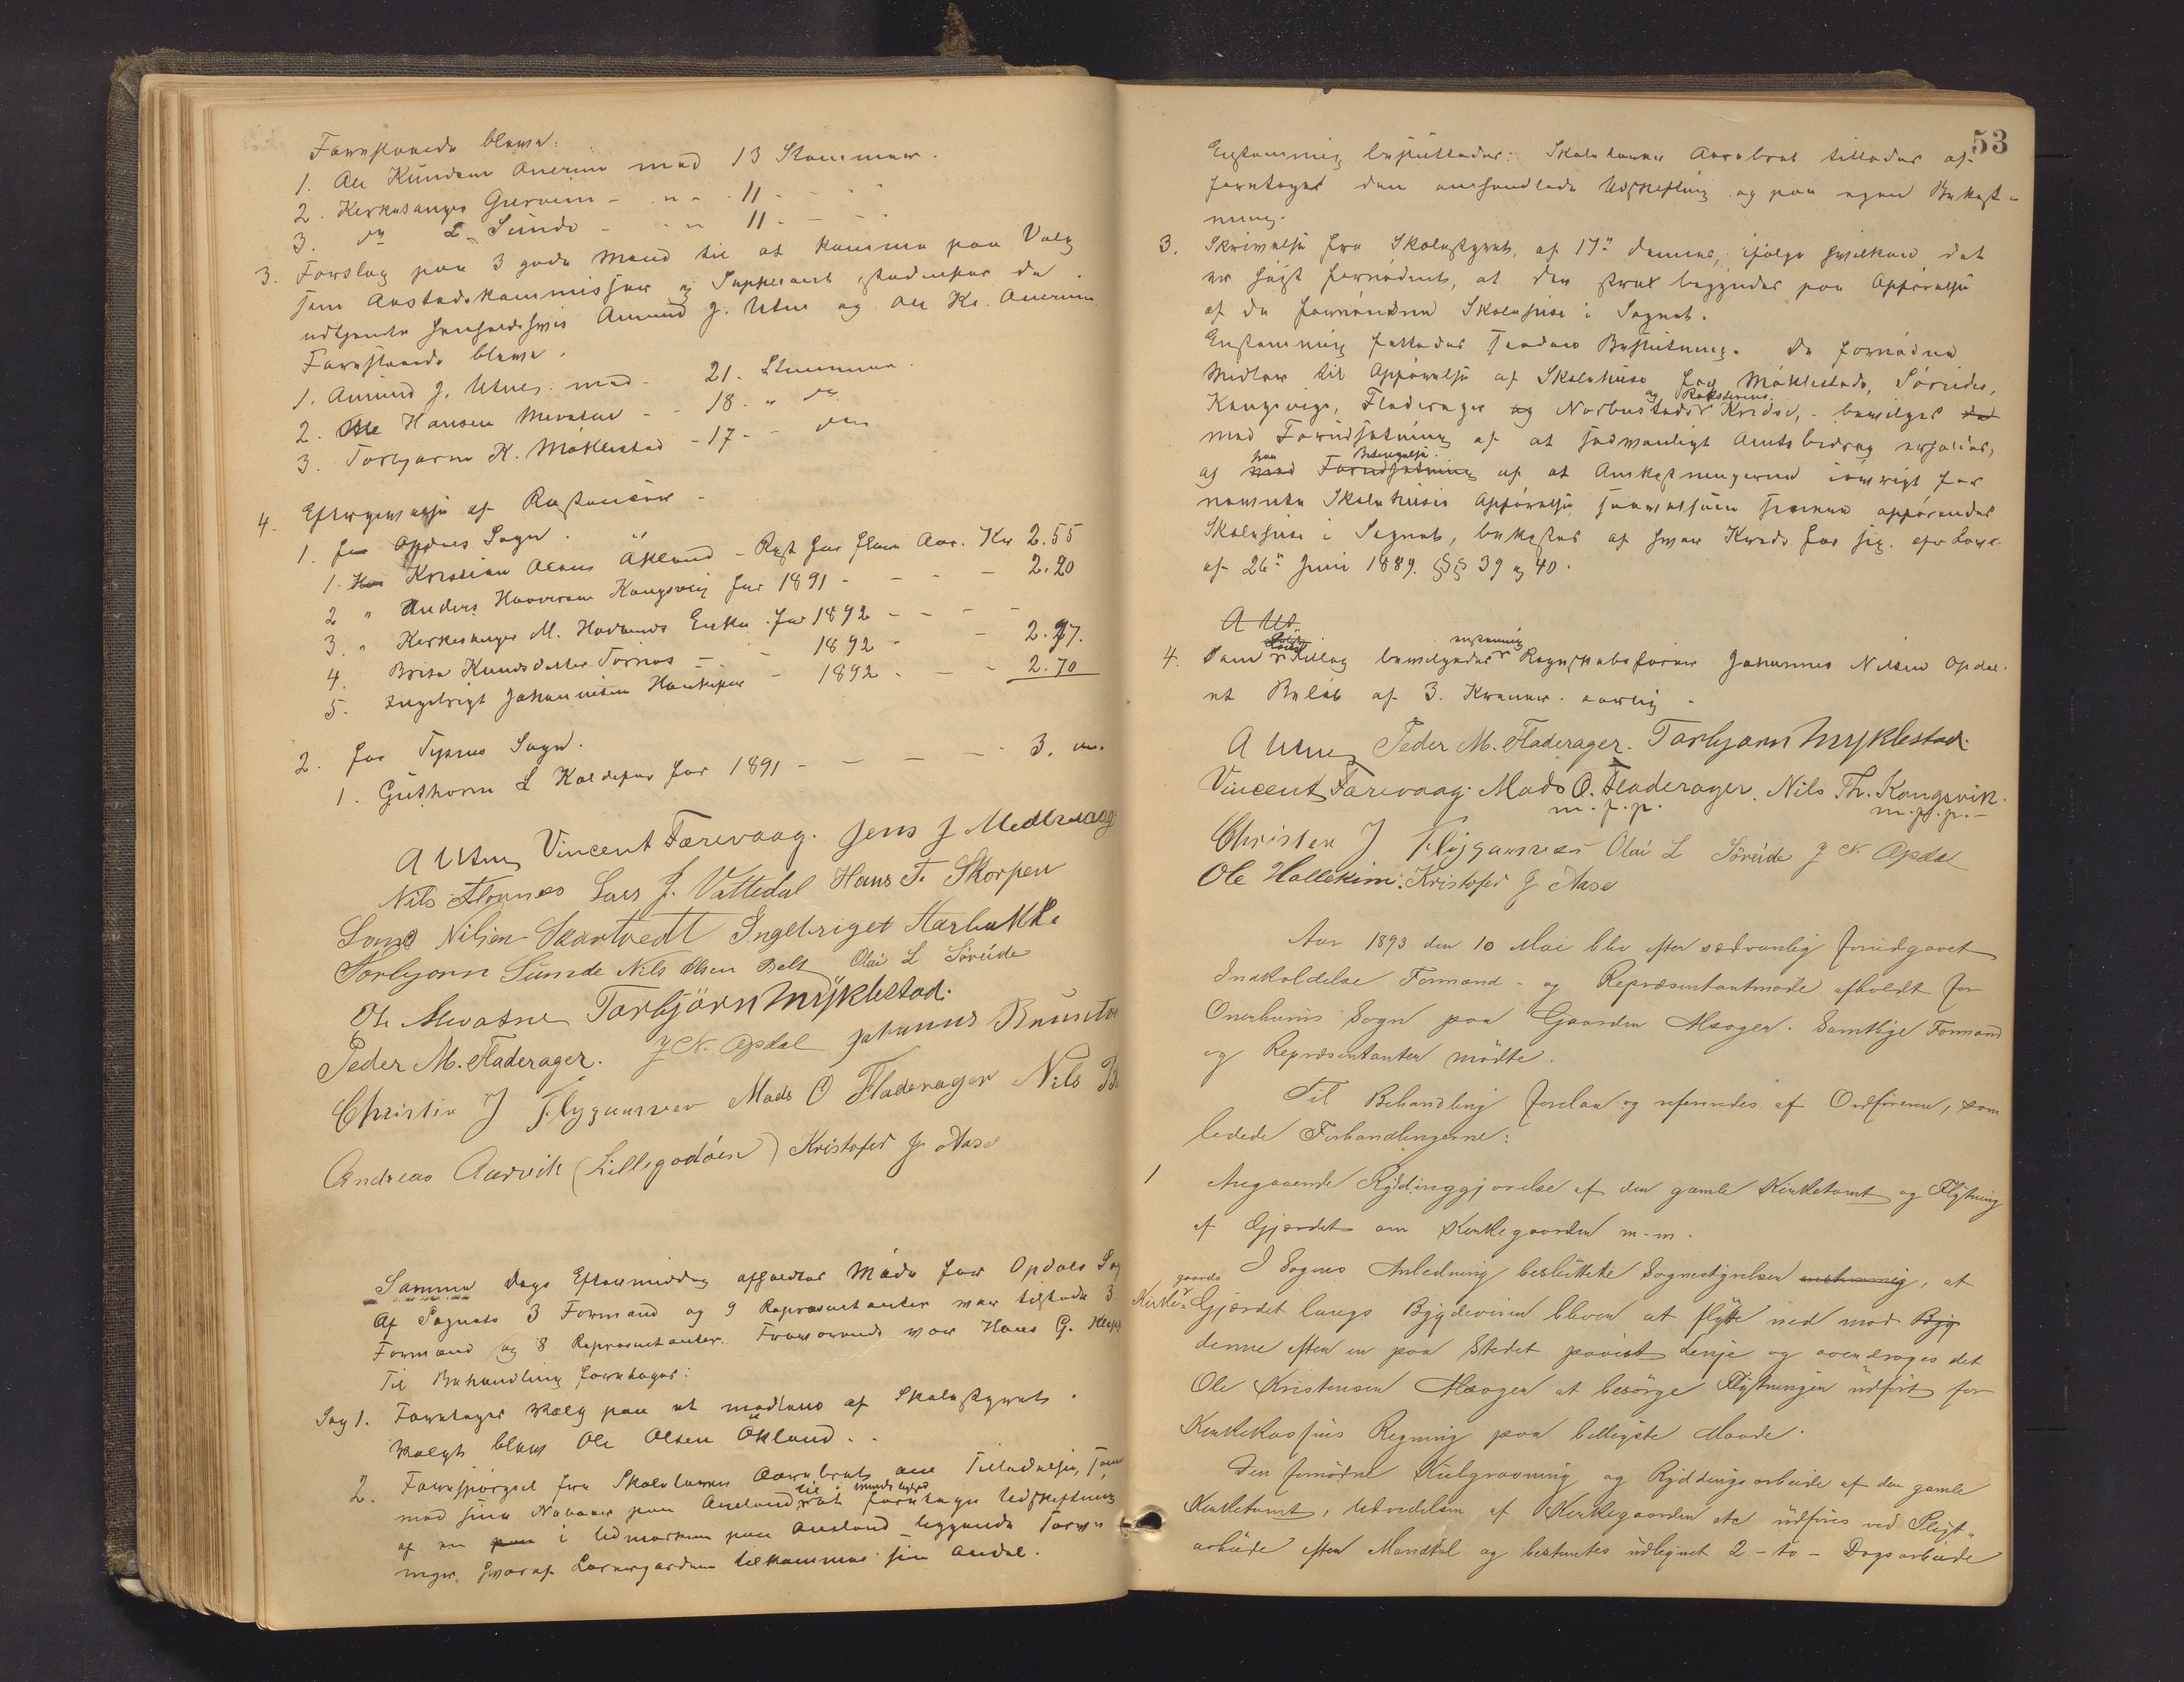 Foreslaaede bleve:
1. Ole Knudsen Onerim med 13 Stemmer.
2. Kirkesanger Gurvin - " - 11 -
3. do L. Sunde - - " 11 -
3. Forslag paa 3 gode Mænd til at komme paa Valg
som Aastedskommissær og Supleant, istedenfor de
udtjente henholdsvis Amund J. Utne og Ole Kr. Onerim
Foreslaaede bleve.
1. Amund J. Utne med 21. Stemmer
2. Ole Hansen Mevatne - - 18 - " do
3. Torbjørn K. Møklestad - 17 - - do
4. Eftergivelse af Restancer -
1. for Opdals Sogn.
1. Kristian Olsens Økland - Rest for flere Aar. Kr 2.55
2 " Anders Haaversen Kongsvig for 1891 - - - - 2.20
3. " Kirkesanger M. Hovlands Enke for 1892 - - - -
4. Brita Knudsdatter Tornes - - 1892 - - 2.97.
5. Ingebrigt Johannesen Haukefær - 1892 - - - 2.70
2. for Tysnes Sogn.
1. Guthorm L Koldefor for 1891 - - - - 3.
A Utne Vincent Færevaag. Jens J Medhaaug
Nils Flornes Lars J. Vattedal Hans T. Skorpen
Lars Nilsen Skartvedt Ingebriget Harbakke
Torbjørn Sunde Nils Olsen Belt Olai L Søreide
Ole Mevatne Torbjörn Myklestad.
Peder M. Fladerager. J N. Opdal Johannes
Christen J Flygansvær Mads O Fladerager Nils
Andreas Aarvik (Lillegodøen) Kristofer J Aase
Samme Dags Eftermiddag afholdtes Møde for Opdals
Af Sognets 3 Formænd og 9 Repræsentanter var tilstede 3
Formænd og 8 Repræsentanter. Fraværende var Hans G.
Til Behandling foretoges:
Sag 1. Foretoges Valg paa et medlem af Skolestyret.
Valgt blev Ole Olsen Økland.
2. Forespørgsel fra Skolelærer Aarebrot om Tilladelse,
med sine Naboer paa Aneland til i mindelighed at foretage Udskiftning
af en i Udmarken paa Aneland liggende
hvoraf Lærergaarden tilkommer sin Andel.
53
Enstemmig besluttedes: Skolelærer Aarebrot tillades at
foretage den omhandlede Udskiftning og paa egen Bekost-
ning.
3. Skrivelse fra Skolestyret, af 17de dennes, ifølge hvilken det
er høist fornødent, at der strax begyndes paa Opførelse
af de fornødne Skolehuse i Sognet.
Enstemmig fattedes saadan Beslutning. De fornødne
Midler til Opførelse af Skolehuse for Møklestads, Søreides,
Kongsvigs, Fladerager og Norbustads og Reksterens Kredse, - bevilges
med Forudsætning af at sædvanligt Amtsbidrag erholdes,
og paa Betingelse af at Omkostningerne iøvrigt for
nævnte Skolehuses Opførelse saavelsom senere opførendes
Skolehuse i Sognet, bekostes af hver Kreds for sig. efter Lov
af 26de Juni 1889. §§ 39 og 40.
A Ut
4. Som Tillæg bevilgedes enstemmig Regnskabsfører Johannes Nilsen Opdal
et Beløb af 3. Kroner. aarlig -
A Utne Peder M. Fladerager. Torbjørn Myklestad.
Vincent Færevaag. Mads O. Fladerager. Nils Th. Kongsvik.
m. f. p. m. f. p. -
Christen J Flygansvær Olai L Søreide J N. Opdal
Ole Hollekim. Kristofer J Aase
Aar 1893 den 10 Mai blev efter sædvanlig forudgaaet
Indkaldelse Formand- og Repræsentantmøde afholdt for
Onerheims Sogn paa Gaarden Hsager. Samtlige Formænd
og Repræsentanter mødte.
Til Behandling forelaa og refereredes af Ordføreren, som
ledede Forhandlingerne:
1 Angaaende Ryddinggjørelse af den gamle Kirketomt og Flytning
af Gjærdet om Kirkegaarden m.m.
I Sagens Anledning besluttede Sognestyrelsen enstemmig, at
Kirkegaards Gjærdet langs Bygdeveien bliver at flytte ned mod Byg
denne efter en paa Stedet paavist Linje og overdroges det
Ole Kristensen Hsager at besørge Flytningen udført for
Kirkekassens Regning paa billigste Maade.
Den fornødne Kulgravning og Ryddingsarbeide af den gamle
Kirketomt, Udvidelsen af Kirkegaarden etc udføres ved Pligt-
arbeide efter Mandtal og bestemtes udlignet 2 - to - Dagsarbeide